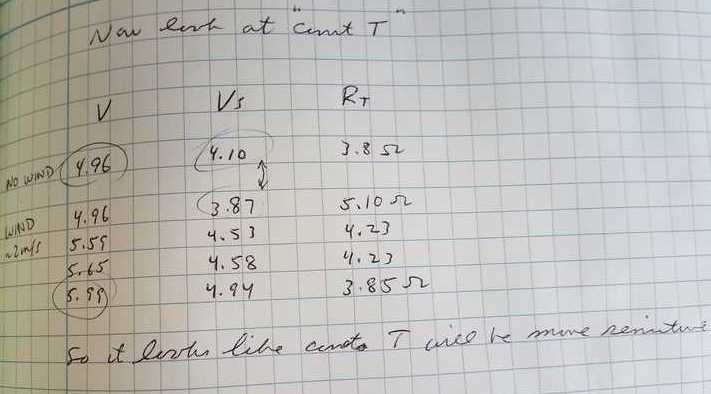 Now look at "const T"
V Vs RT
NO WIND 4.96 4.10 3.8 Ω
WIND 4.96 3.87 5.10 Ω
~2m/s 5.59 4.53 4.23
5.65 4.58 4.23
5.99 4.94 3.85 Ω
So it looks like const T will be more sensitive